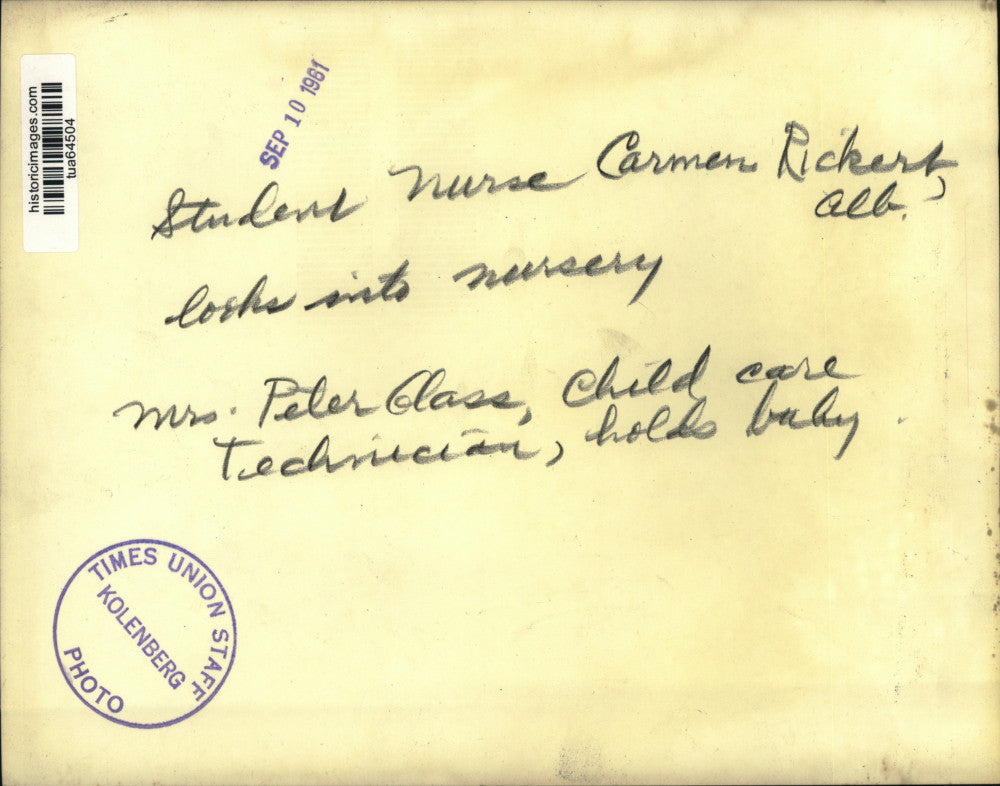 historicimages.com
tua64504
SEP 10 1961
Student nurse Carmen Rickert,
alb.
looks into nursery
Mrs. Peter Class, Child care
Technician, holds baby.
TIMES UNION STAFF
KOLENBERG
PHOTO